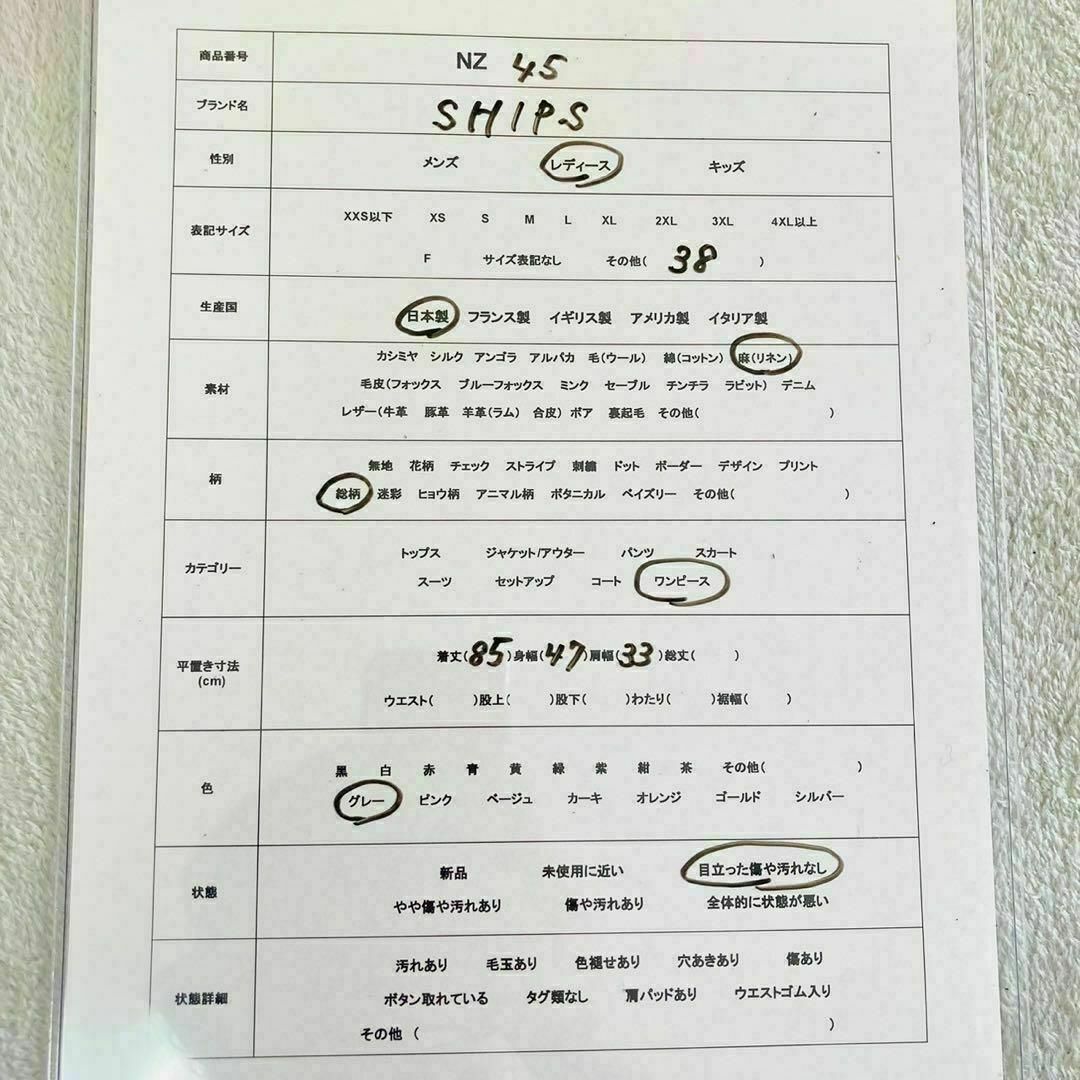 商品番号 NZ 45
ブランド名 SHIPS
性別 メンズ レディース キッズ
XXS以下 XS S M L XL 2XL 3XL 4XL以上
表記サイズ
F サイズ表記なし その他( 38 )
生産国 日本製 フランス製 イギリス製 アメリカ製 イタリア製
カシミヤ シルク アンゴラ アルパカ 毛(ウール) 綿(コットン) 麻(リネン)
素材 毛皮(フォックス ブルーフォックス ミンク セーブル チンチラ ラビット) デニム
レザー(牛革 豚革 羊革(ラム) 合皮) ボア 裏起毛 その他( )
無地 花柄 チェック ストライプ 刺繍 ドット ボーダー デザイン プリント
柄
総柄 迷彩 ヒョウ柄 アニマル柄 ボタニカル ペイズリー その他( )
トップス ジャケット/アウター パンツ スカート
カテゴリー
スーツ セットアップ コート ワンピース
着丈(85)身幅(47)肩幅(33)総丈( )
平置き寸法
(cm)
ウエスト( )股上( )股下( )わたり( )裾幅( )
黒 白 赤 青 黄 緑 紫 紺 茶 その他( )
色
グレー ピンク ベージュ カーキ オレンジ ゴールド シルバー
新品 未使用に近い 目立った傷や汚れなし
状態
やや傷や汚れあり 傷や汚れあり 全体的に状態が悪い
汚れあり 毛玉あり 色褪せあり 穴あきあり 傷あり
状態詳細 ボタン取れている タグ類なし 肩パッドあり ウエストゴム入り
その他 ( )